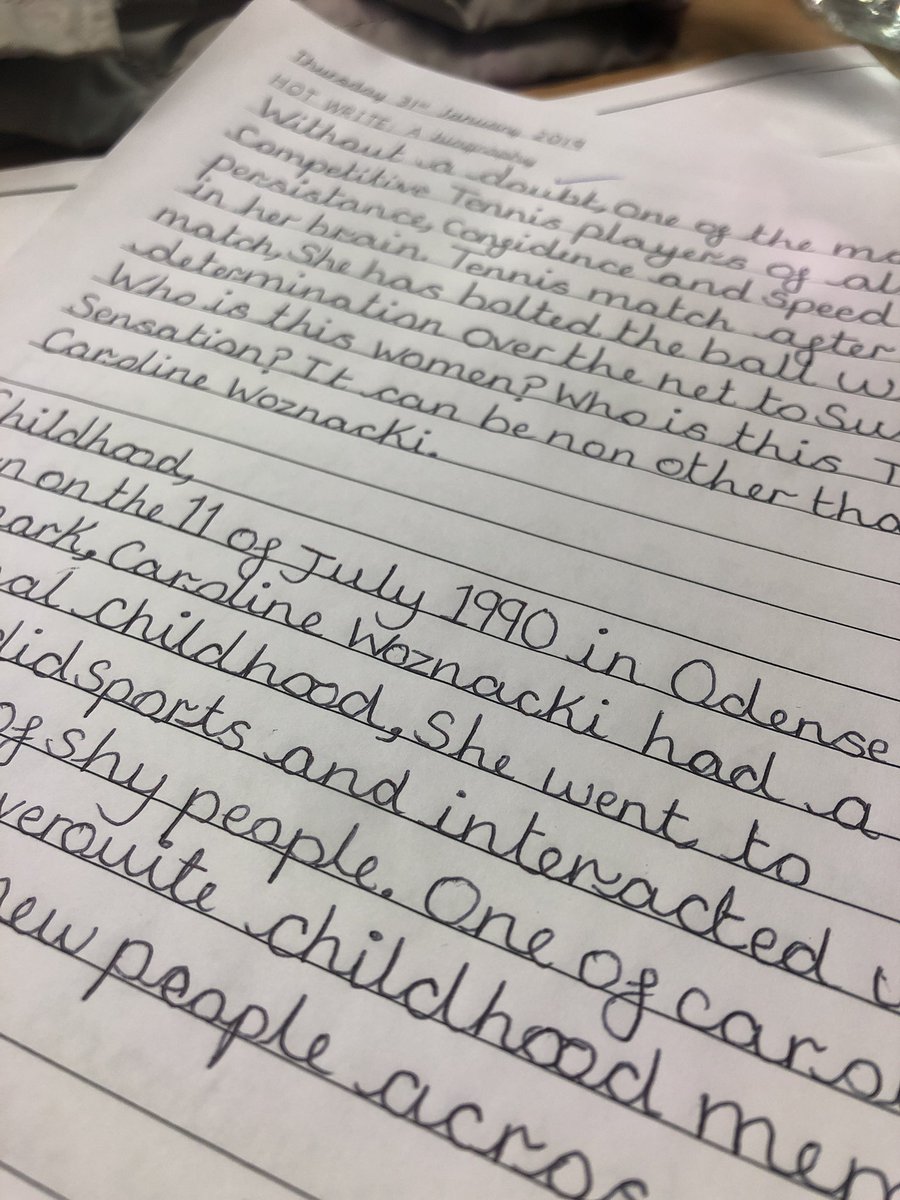 Thursday 31st January 2019
HOT WRITE: A biography
Without a doubt, One of the
Competitive Tennis players of
persistance, Confidence and Speed
in her brain. Tennis match after
match, She has bolted the ball
determination over the net to
Who is this women? Who is this
Sensation? It can be non other
Caroline Woznacki.
Childhood,
on the 11 of July 1990 in Odense
Caroline Woznacki had a
childhood, She went to
did sports and interacted
of shy people. One of
childhood
new people